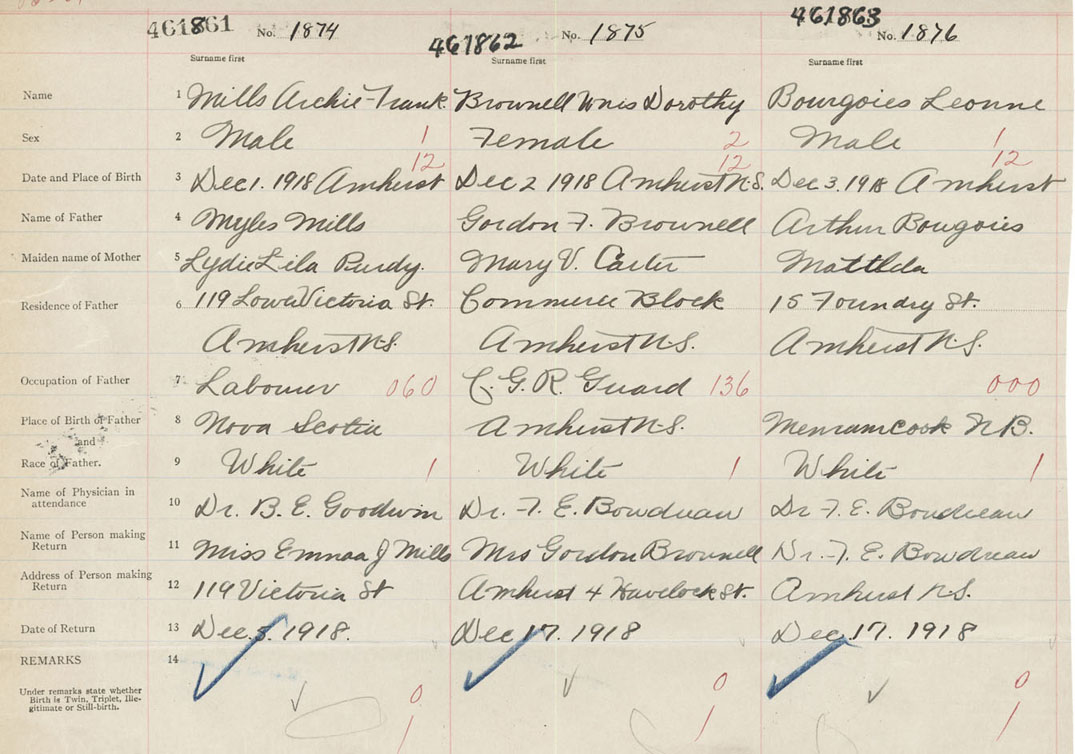 461861 No. 1874 461862 No. 1875 461863 No. 1876
Surname first Surname first Surname first
Name 1 Mills Archie Frank. Brownell Dorothy Bourgoies Leonne
Sex 2 Male 1 Female 2 Male 1
12 12 12
Date and Place of Birth 3 Dec 1. 1918 Amherst Dec 2 1918 Amherst N.S. Dec 3. 1918 Amherst
Name of Father 4 Myles Mills Gordon F. Brownell Arthur Bougoies
Maiden name of Mother 5 Lydie Lila Purdy. Mary V. Carter Mattlda
Residence of Father 6 119 Lower Victoria St. Commerce Block 15 Foundry St.
Amherst N.S. Amherst N.S. Amherst N.S.
Occupation of Father 7 Labourer 060 C. G. R. Guard 136 000
Place of Birth of Father 8 Nova Scotia Amherst N.S. Memramcook N.B.
and
Race of Father. 9 White 1 White 1 White 1
Name of Physician in
attendance 10 Dr. B. E. Goodwin Dr. F. E. Bowdreau Dr F. E. Boudreau
Name of Person making
Return 11 Miss Emnaa J Mills Mrs Gordon Brownell Dr. F. E. Bowdreau
Address of Person making
Return 12 119 Victoria St Amherst 4 Havelock St. Amherst N.S.
Date of Return 13 Dec. 1918. Dec 17. 1918 Dec. 17. 1918
REMARKS 14
Under remarks state whether
Birth is Twin, Triplet, Ille-
gitimate or Still-birth.
0 0 0
1 1 1